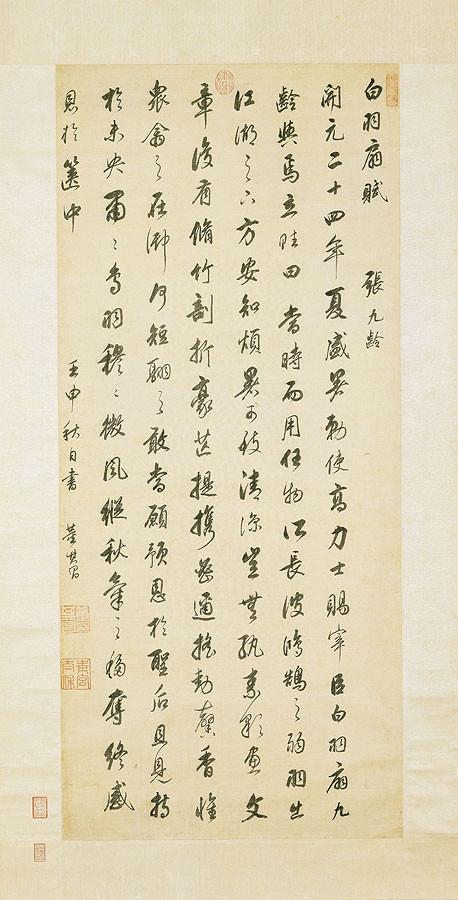 白羽扇賦 張九齡
開元二十四年夏盛暑勅使高力士賜宰臣白羽扇九
齡與焉立賦曰當時而用任物所長彼鴻鵠之弱羽出
江湖之下方安知煩暑可致清涼豈無紈素彩畫文
章復有脩竹剖析豪芒提攜密邇搖動馨香惟
衆禽之在御何短翮之敢當願預恩於聖后且見持
於未央肅〻白羽穆〻微風縱秋氣之移奪終感
恩於篋中 壬申秋日書 董其昌